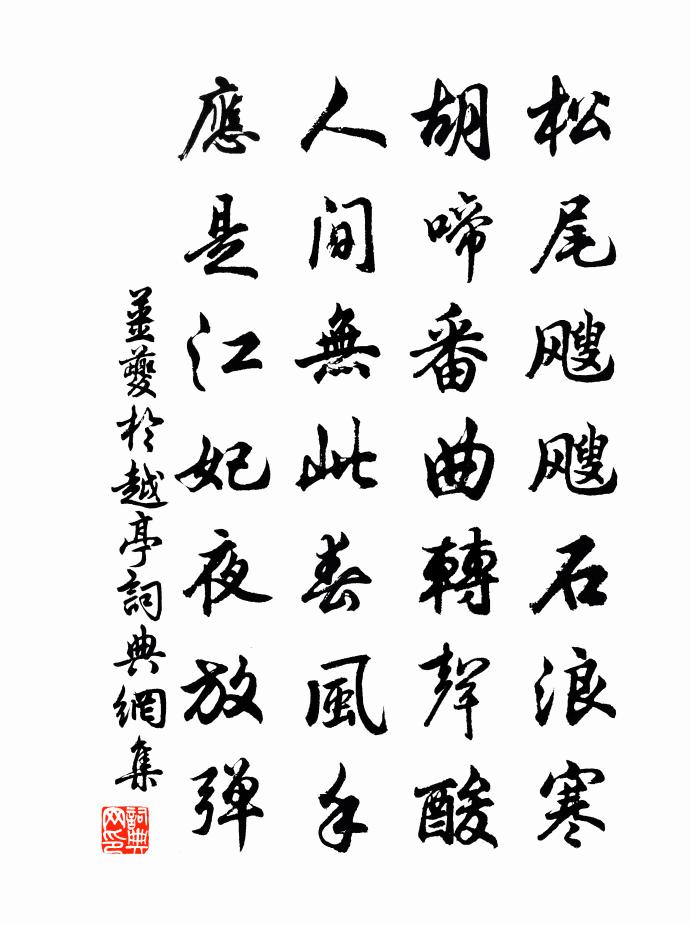 松尾飕飕石浪寒
胡啼番曲轉聲酸
人間無此春風手
應是江妃夜放弹
姜夔於越亭詞典網集
詞典网印